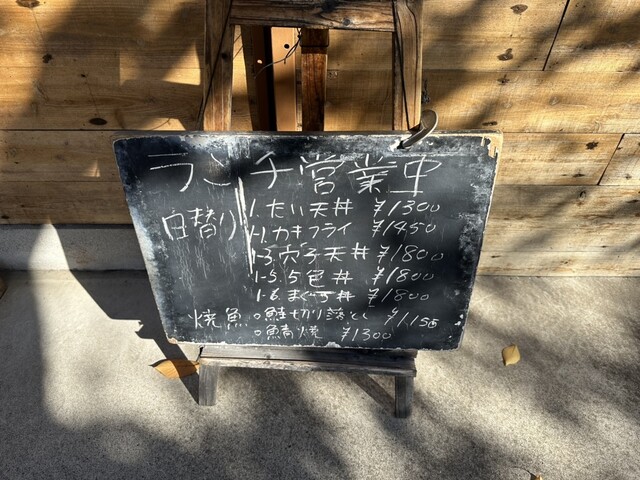 ランチ営業中
日替り 1. たい天丼 ¥1300
1.1. カキフライ ¥1450
1-3. 穴子天丼 ¥1800
1-5. 5色丼 ¥1800
1-6. まぐろ丼 ¥1800
焼魚 ○鮭切り落とし ¥1,155
○鯖焼 ¥1300